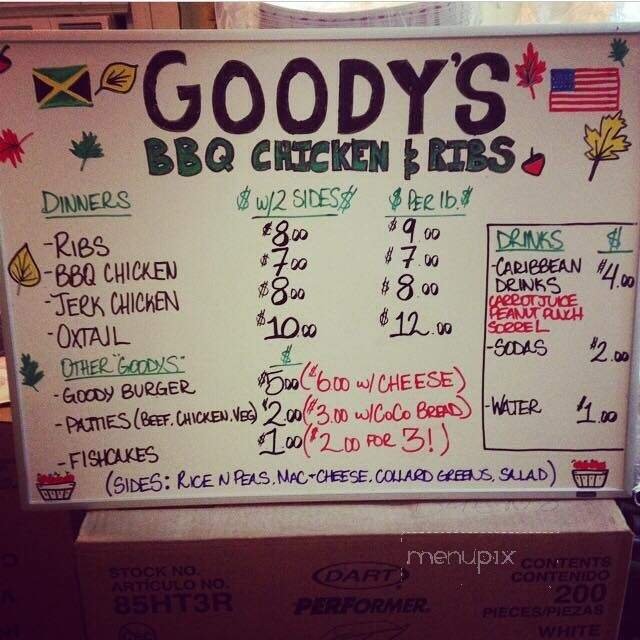 GOODY'S
BBQ CHICKEN & RIBS
DINNERS $ W/2 SIDES $ $ PER lb. $
-RIBS $8.00 $9.00
-BBQ CHICKEN $7.00 $7.00
-JERK CHICKEN $8.00 $8.00
-OXTAIL $10.00 $12.00
OTHER "GOODYS" $
-GOODY BURGER $5.00 ($6.00 W/CHEESE)
-PATTIES (BEEF, CHICKEN, VEG) $2.00 ($3.00 W/COCO BREAD)
-FISHCAKES $1.00 ($2.00 FOR 3!)
(SIDES: RICE N PEAS, MAC+CHEESE, COLLARD GREENS, SALAD)
DRINKS $
-CARIBBEAN $4.00
DRINKS
CARROT JUICE
PEANUT PUNCH
SORREL
-SODAS $2.00
-WATER $1.00
menupix
STOCK NO.
ARTÍCULO NO.
85HT3R
DART
PERFORMER.
CONTENTS
CONTENIDO
200
PIECES/PIEZAS
WHITE